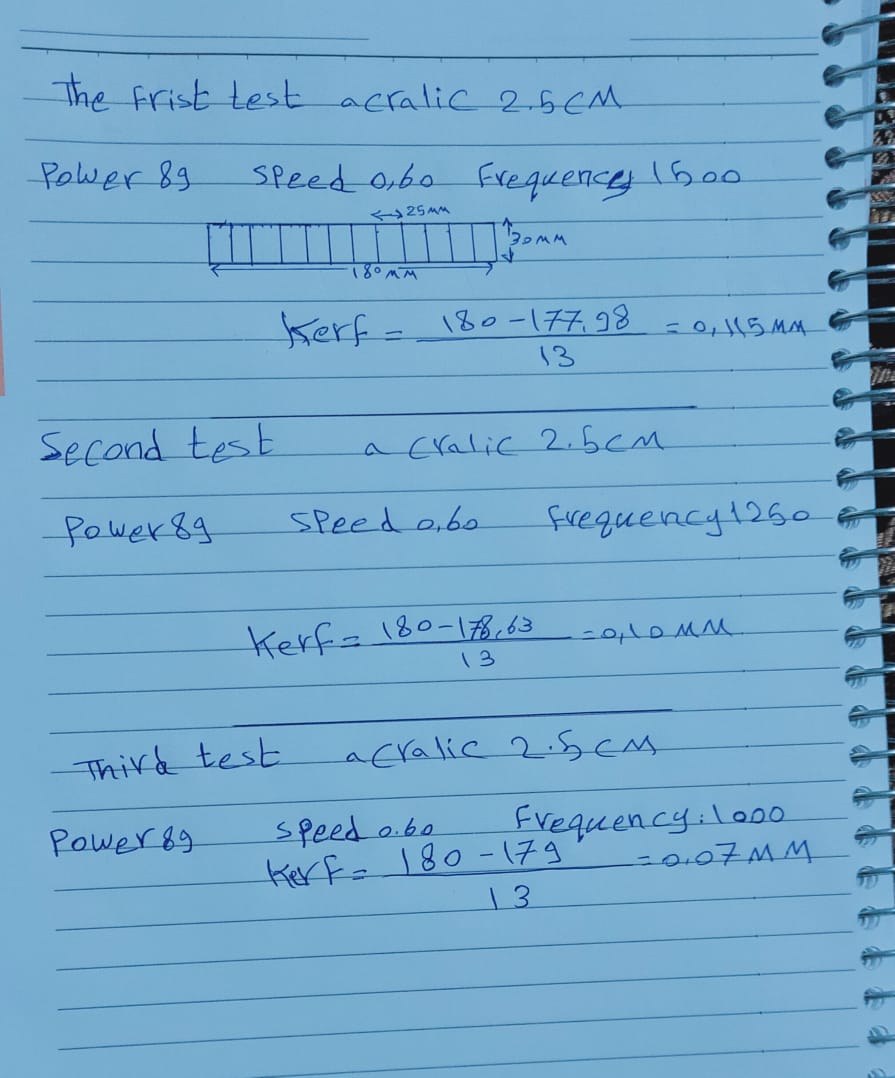 The Frist test acralic 2.5 CM
Power 89 speed 0,60 Frequency 1500
25 MM
30 MM
180 MM
Kerf = 180-177.98 / 13 = 0,115 MM
Second test acralic 2.5 CM
Power 89 speed 0,60 frequency 1250
Kerf = 180-178,63 / 13 = 0,10 MM
Third test acralic 2.5 CM
Power 89 speed 0.60 Frequency: 1000
Kerf = 180-179 / 13 = 0.07 MM